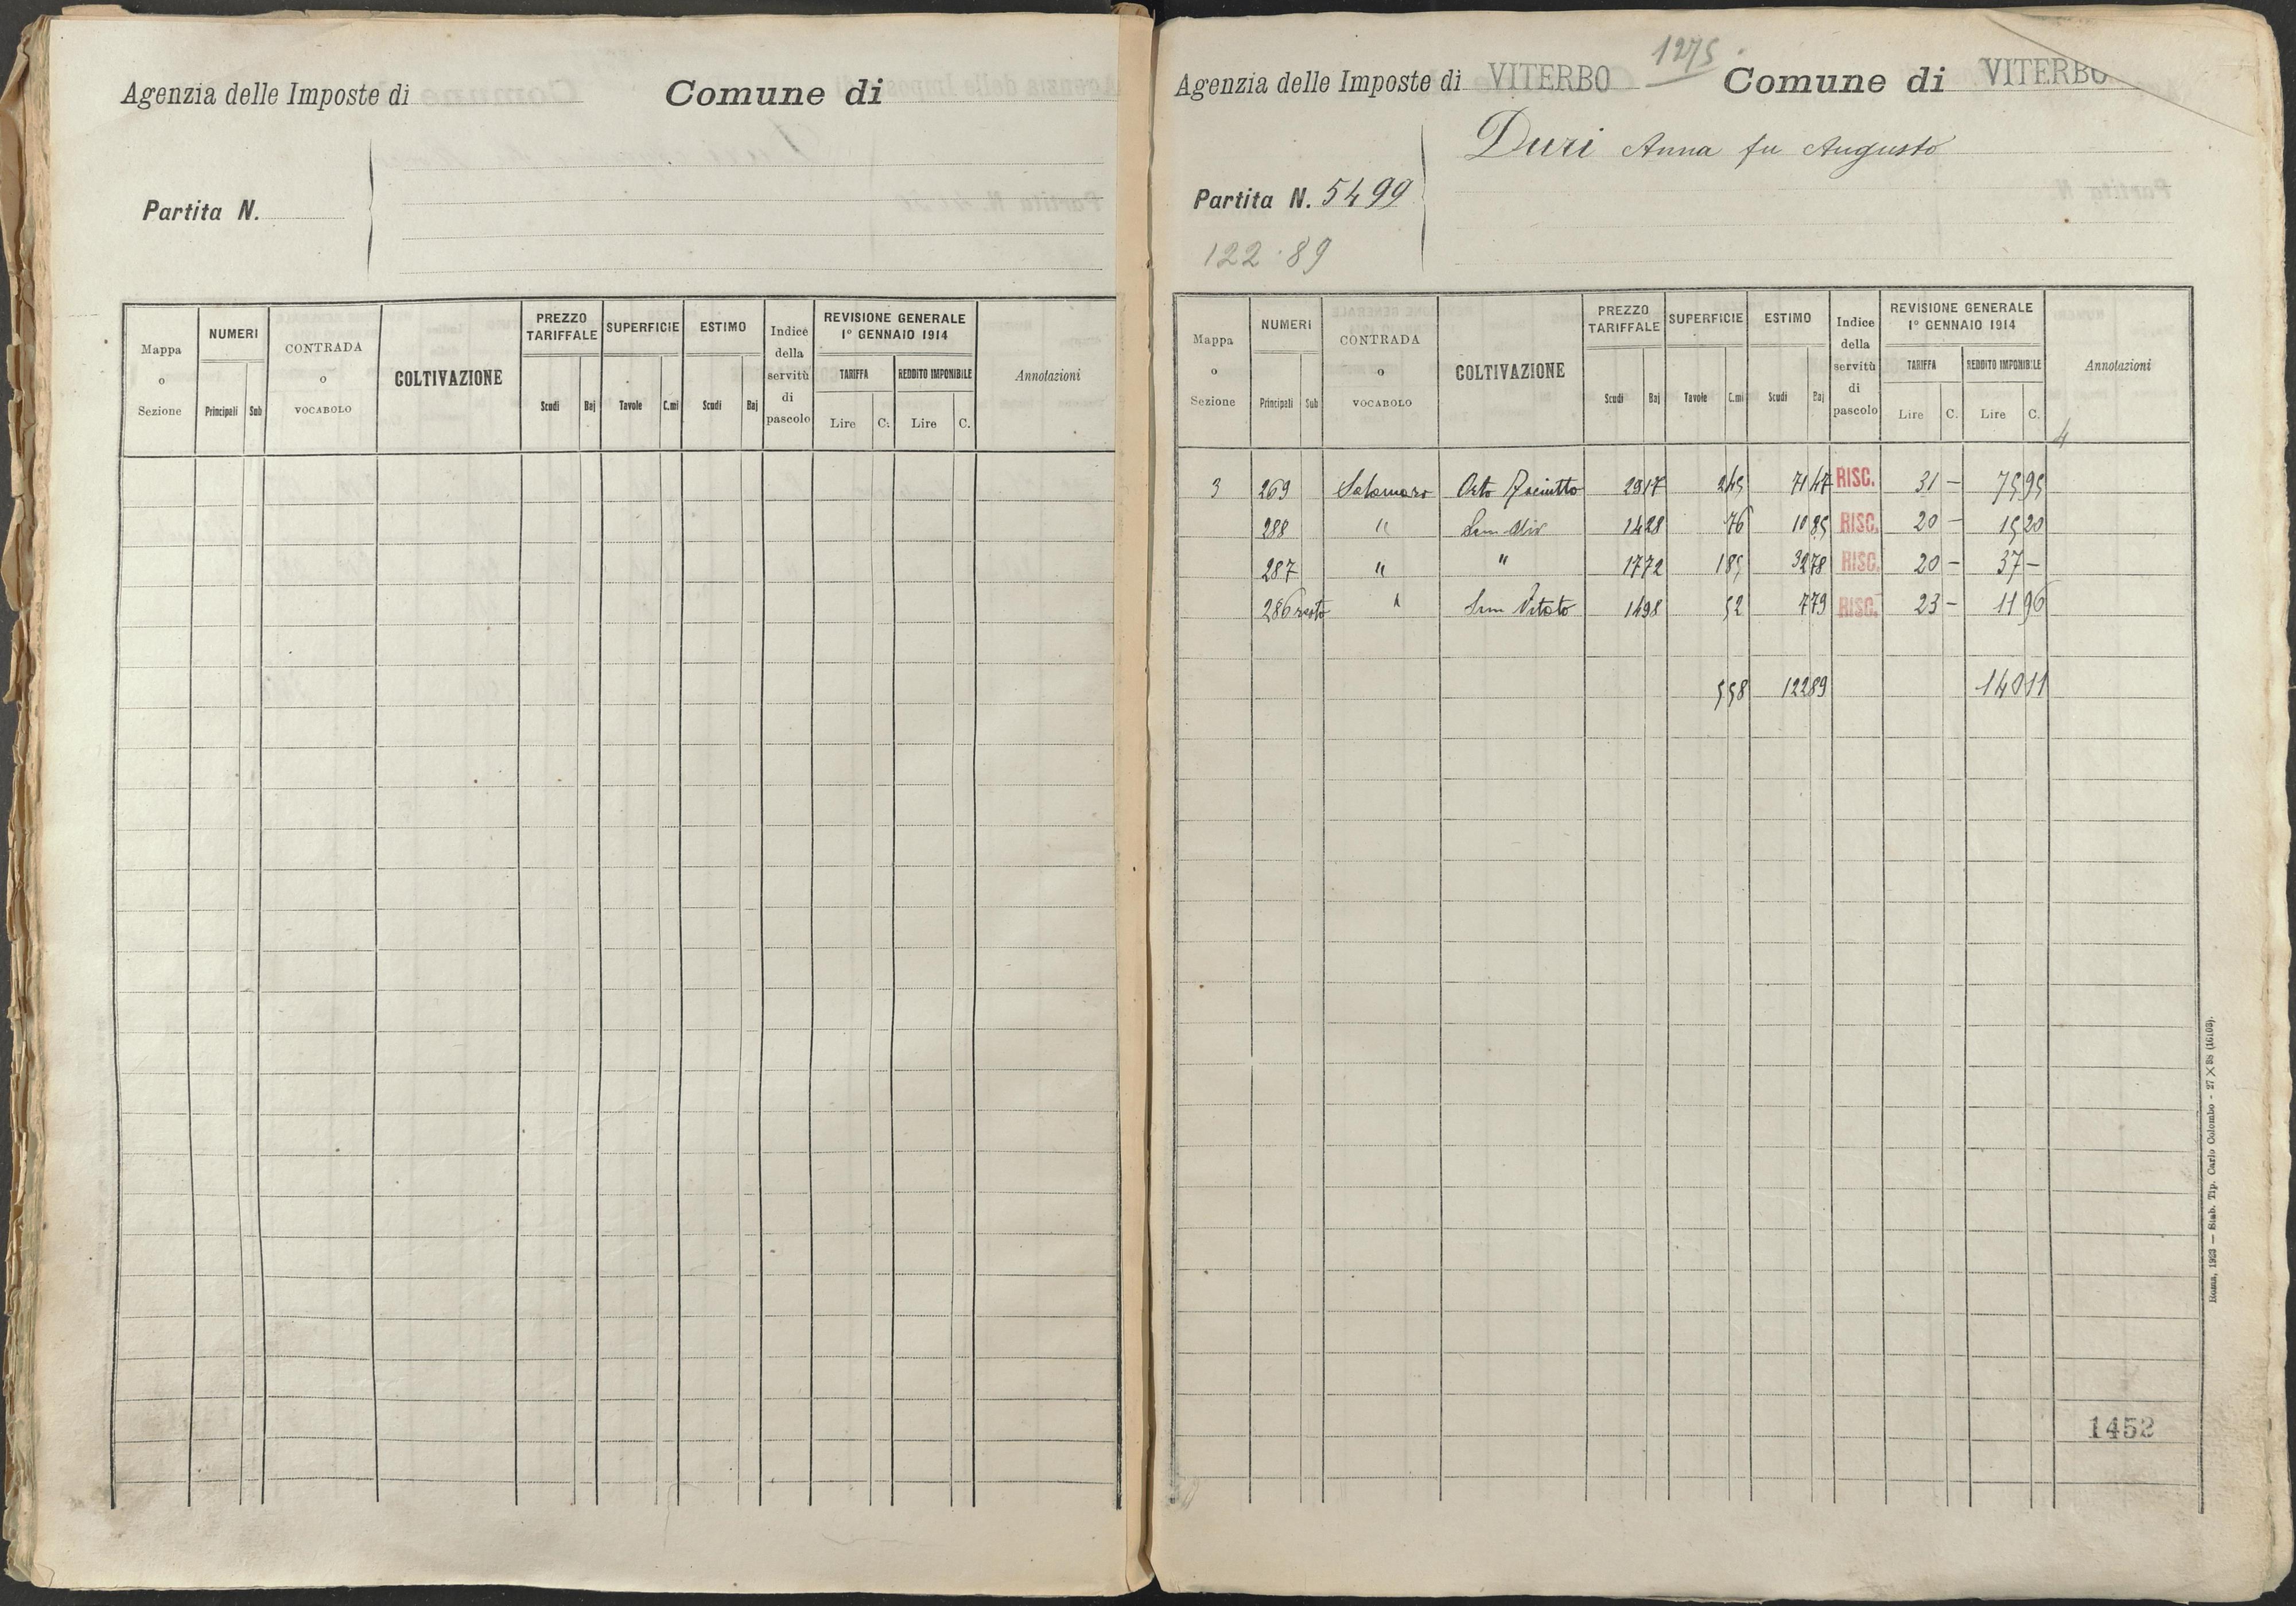 Agenzia delle Imposte di
Comune di
Partita N.
Mappa o Sezione
NUMERI
Principali Sub
CONTRADA o VOCABOLO
COLTIVAZIONE
PREZZO TARIFFALE
Scudi Baj
SUPERFICIE
Tavole C.mi
ESTIMO
Scudi Baj
Indice della servitù di pascolo
REVISIONE GENERALE
1º GENNAIO 1914
TARIFFA
Lire C.
REDDITO IMPONIBILE
Lire C.
Annotazioni
1275
Agenzia delle Imposte di VITERBO Comune di VITERBO
Duri Anna fu Augusto
Partita N. 5499
122.89
Mappa o Sezione
NUMERI
Principali Sub
CONTRADA o VOCABOLO
COLTIVAZIONE
PREZZO TARIFFALE
Scudi Baj
SUPERFICIE
Tavole C.mi
ESTIMO
Scudi Baj
Indice della servitù di pascolo
REVISIONE GENERALE
1º GENNAIO 1914
TARIFFA
Lire C.
REDDITO IMPONIBILE
Lire C.
Annotazioni
4
3 269 Orto 29 17 2 45 71 47 RISC. 31 – 75 95
288 " 14 28 76 10 85 RISC. 20 – 15 20
287 " " 17 72 1 85 32 78 RISC. 20 – 37 –
286 resto " Sem Vitato 14 98 52 7 79 RISC. 23 – 11 96
5 58 122 89 140 11
1452
Roma, 1923 — Stab. Tip. Carlo Colombo - 27 X 38 (16103).